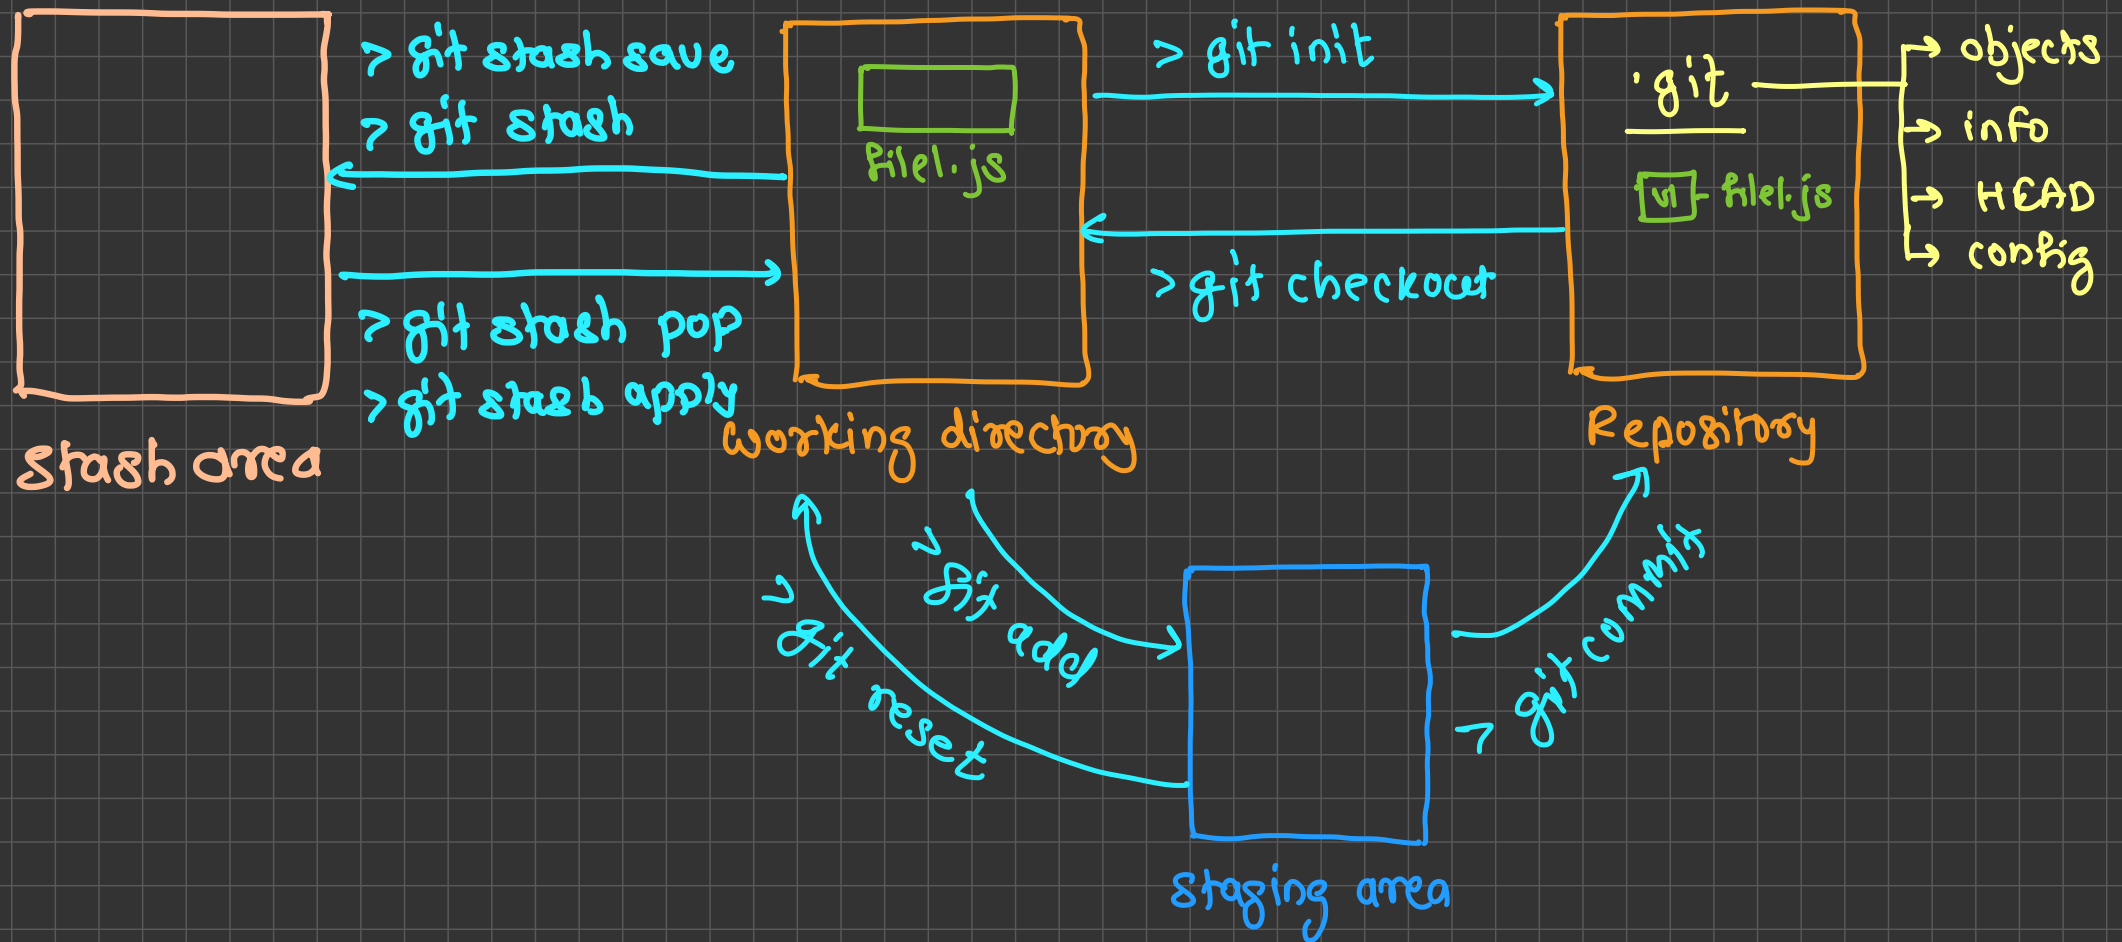 > git stash save
> git stash
> git stash pop
> git stash apply
stash area
file1.js
working directory
> git init
> git checkout
.git
v1 - file1.js
Repository
→ objects
→ info
→ HEAD
→ config
> git add
> git reset
> git commit
staging area